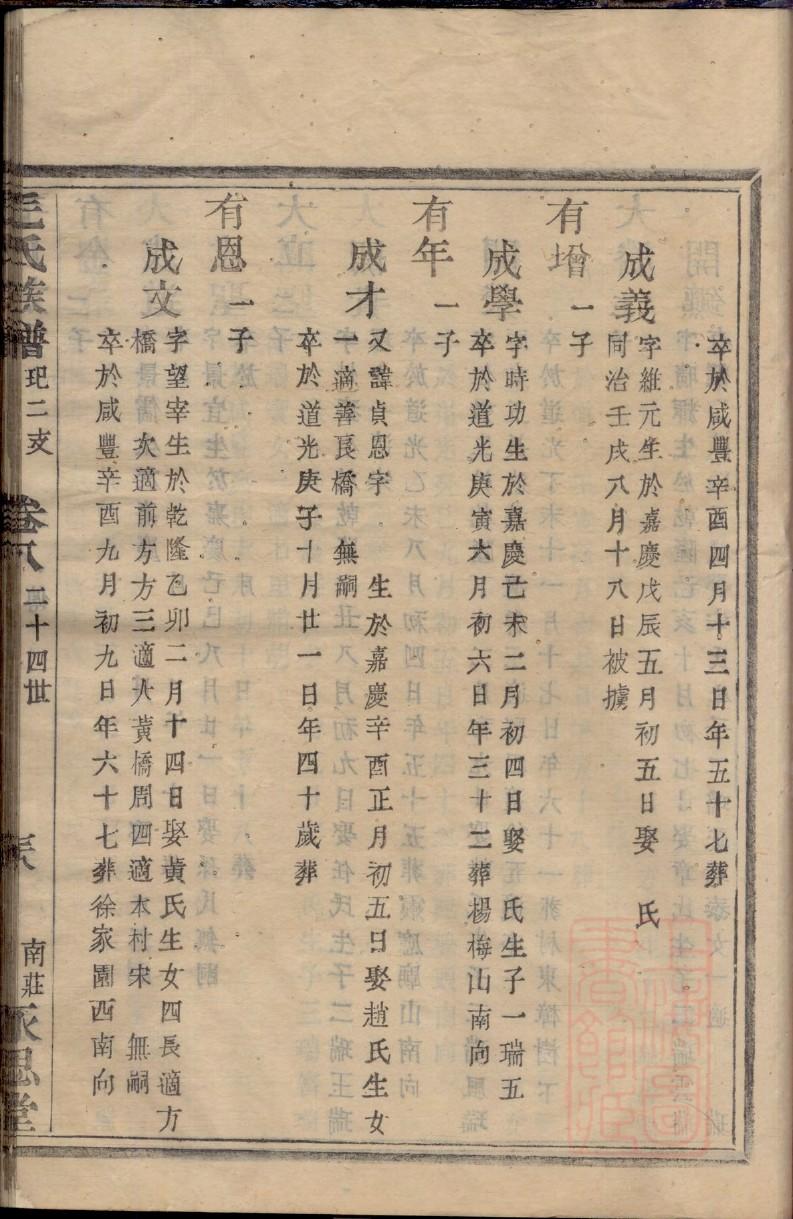 卒於咸豐辛酉四月十三日年五十七葬
成義
字維元生於嘉慶戊辰五月初五日娶 氏
同治壬戌八月十八日被擄
有增 一子
成學
字時功生於嘉慶己未二月初四日娶 氏生子一瑞五
卒於道光庚寅六月初六日年三十二葬楊梅山南向
有年 一子
成才
又諱貞恩字 生於嘉慶辛酉正月初五日娶趙氏生女
一適善長橋 無嗣
卒於道光庚子十月廿一日年四十歲葬
有恩 一子
成文
字望宰生於乾隆乙卯二月十四日娶黃氏生女四長適方
橋 次適前方方三適人黃橋周四適本村宋 無嗣
卒於咸豐辛酉九月初九日年六十七葬徐家園西南向
毛氏族譜 玘二支 卷八 二十四世 南莊永思堂